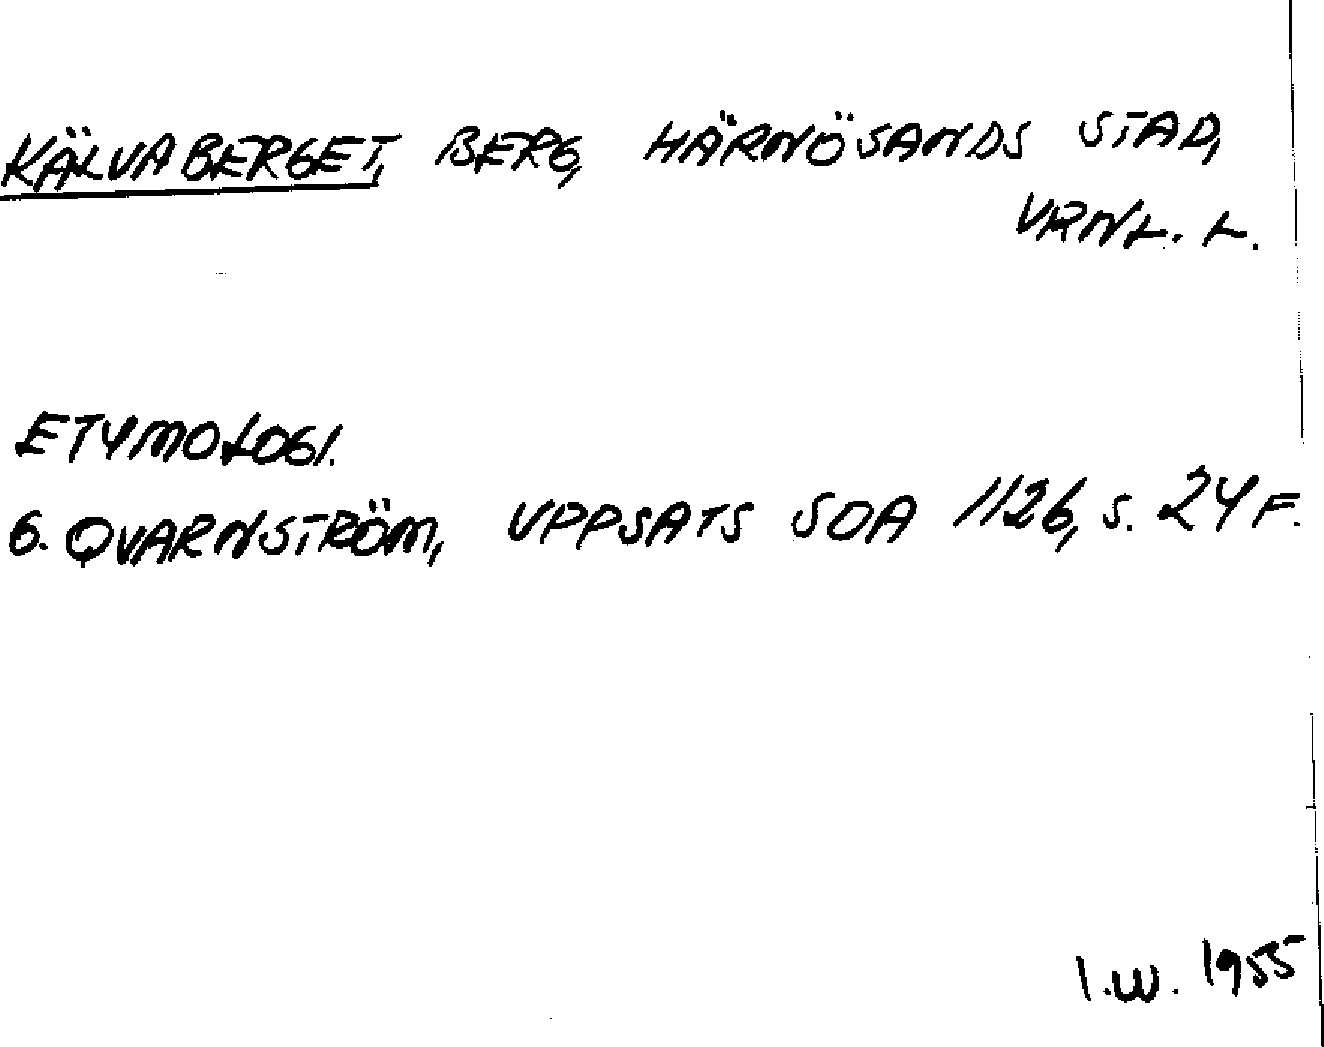 KÄLVABERGET, BERG, HÄRNÖSANDS STAD,
VRNL. L.
ETYMOLOGI.
G. QVARNSTRÖM, UPPSATS SOA 1126, S. 24 F.
I.W. 1955